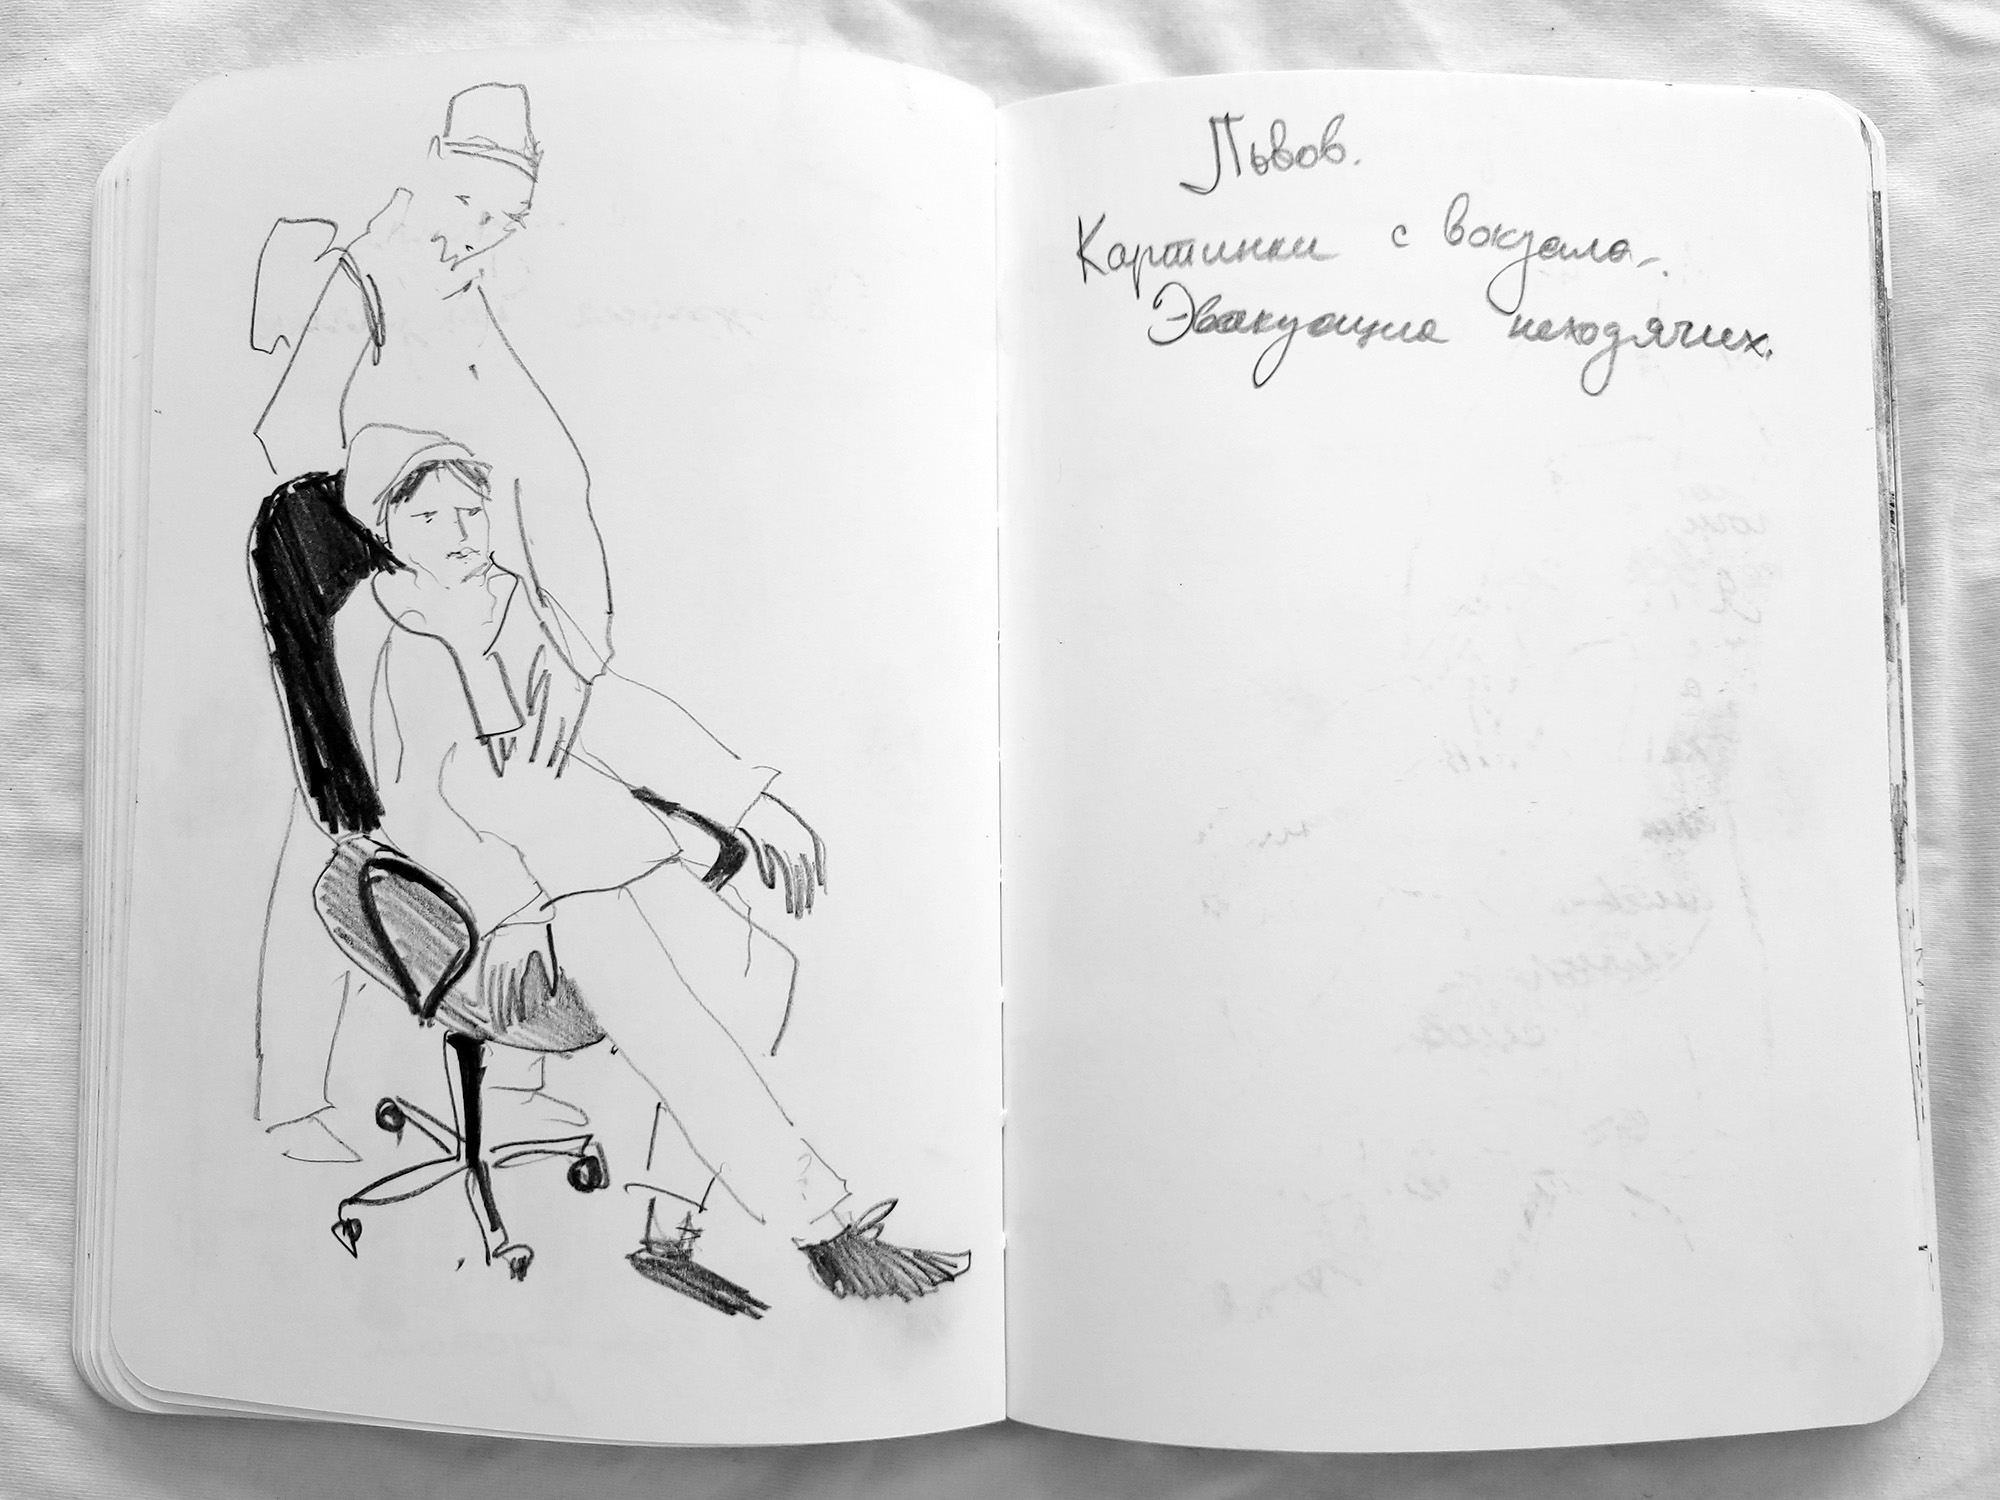 Львов.
Картинки с вокзала.
Эвакуация неходячих.